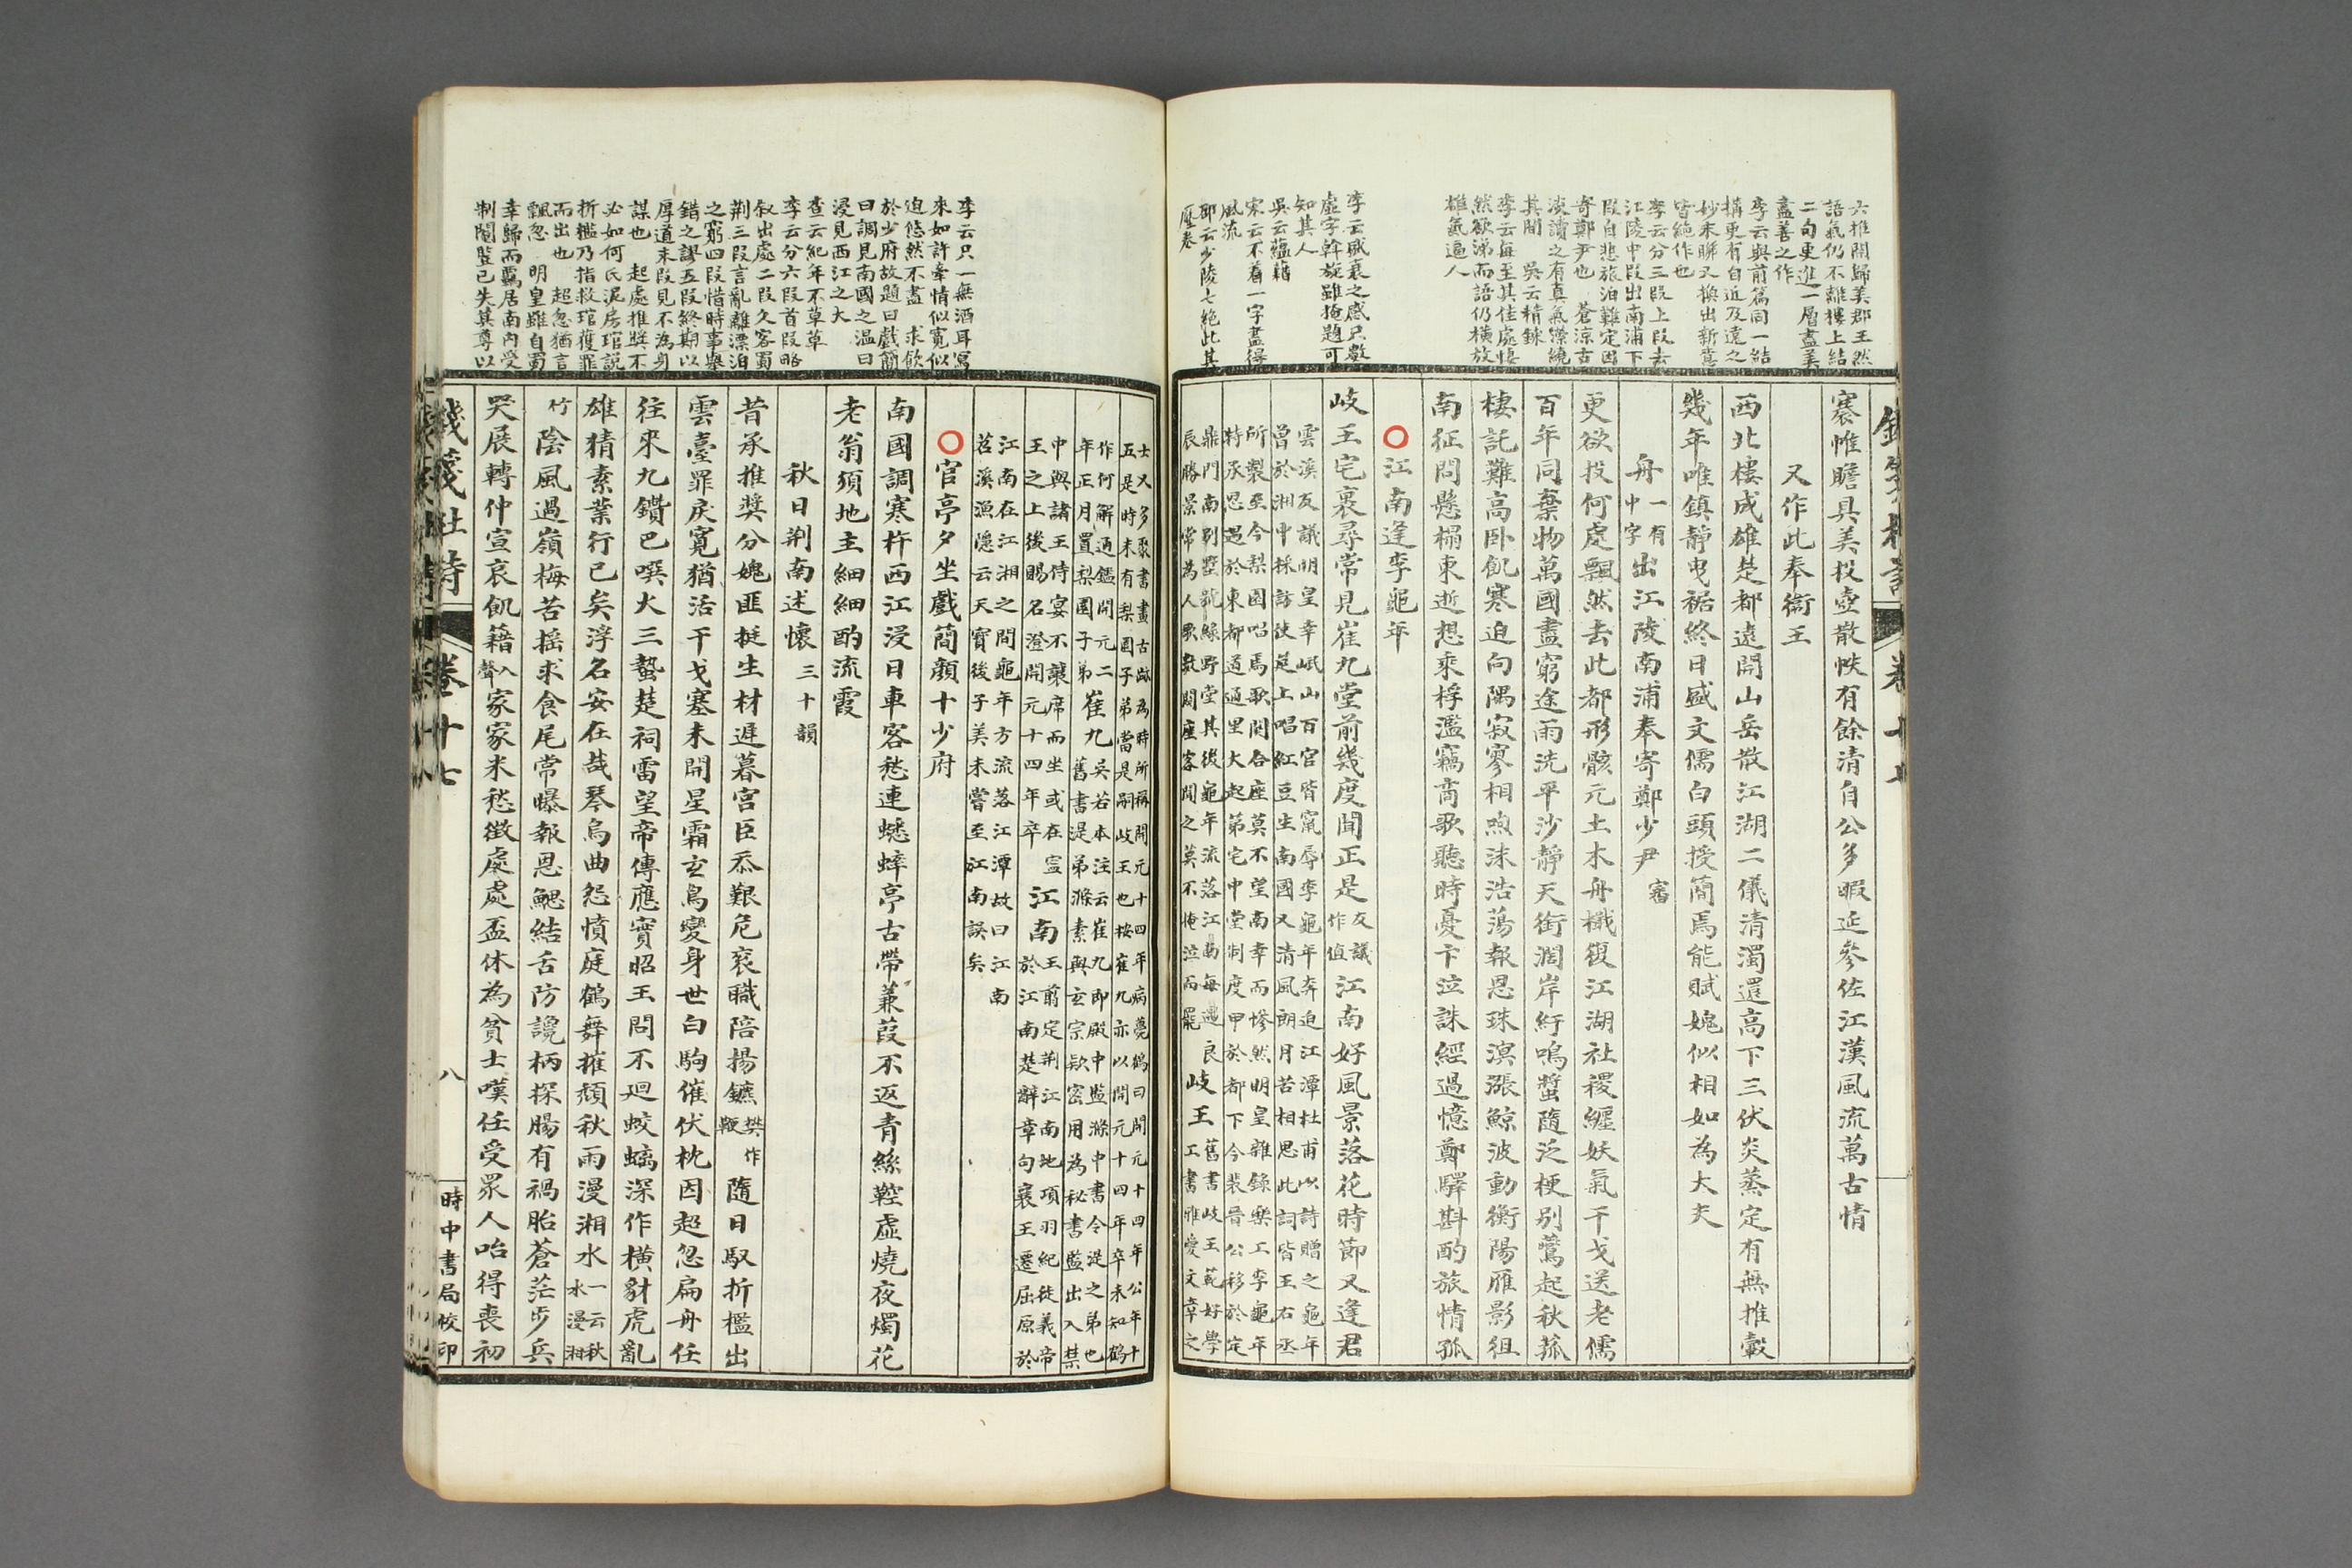 六推開歸美郡王然
語氣仍不離樓上結
二句更進一層盡美
盡善之作
李云與前篇同一結
構更有自近及遠之
妙末聯又換出新意
皆絕作也
李云分三段上段去
江陵中段出南浦下
段自悲旅泊難定因
寄鄭尹也 蒼涼古
淡讀之有真氣繚繞
其間 吳云精鍊
李云每至其佳處悽
然欲涕而語仍橫放
雄氣逼人
李云盛衰之感只數
虛字斡旋雖掩題可
知其人
吳云蘊藉
宋云不着一字盡得
風流
邵云少陵七絕此其
壓卷
褰帷瞻具美投壺散帙有餘清自公多暇延參佐江漢風流萬古情
又作此奉衛王
西北樓成雄楚都遠開山岳散江湖二儀清濁還高下三伏炎蒸定有無推轂
幾年唯鎮靜曳裾終日盛文儒白頭授簡焉能賦媿似相如為大夫
舟一有中字出江陵南浦奉寄鄭少尹審
更欲投何處飄然去此都形骸元土木舟檝復江湖社稷纏妖氣干戈送老儒
百年同棄物萬國盡窮途雨洗平沙靜天銜濶岸紆鳴螿隨泛梗別鷰起秋菰
棲託難高卧飢寒迫向隅寂寥相喣沫浩蕩報恩珠溟漲鯨波動衡陽雁影徂
南征問懸榻東逝想乘桴濫竊商歌聽時憂卞泣誅經過憶鄭驛斟酌旅情孤
江南逢李龜年
岐王宅裏尋常見崔九堂前幾度聞正是友議作值江南好風景落花時節又逢君
雲溪友議明皇幸岷山百官皆竄辱李龜年奔迫江潭杜甫以詩贈之龜年
曾於湘中採訪使筵上唱紅豆生南國又清風朗月苦相思此詞皆王右丞
所製至今梨園唱焉歌闋合座莫不望南幸而慘然明皇雜錄樂工李龜年
特承恩遇於東都道通里大起第宅中堂制度甲於都下今裴晉公移於定
鼎門南別墅號綠野堂其後龜年流落江南每遇良
辰勝景常為人歌數闋座客聞之莫不掩泣而罷
岐王舊書岐王範好學
工書雅愛文章之
士又多聚書畫古跡為時所稱開元十四年病薨鶴曰開元十四年公年十
五是時未有梨園子弟當是嗣岐王也按崔九亦以開元十四年卒未知鶴
作何解通鑑開元二
年正月置梨園子弟
崔九吳若本注云崔九即殿中監滌中書令湜之弟也
舊書湜弟滌素與玄宗欵密用為秘書監出入禁
中與諸王侍宴不讓席而坐或在寧
王之上後賜名澄開元十四年卒
江南王翦定荆江南地項羽紀徙義帝
於江南楚辭章句襄王遷屈原於
江南在江湘之間龜年方流落江潭故曰江南
苕溪漁隱云天寶後子美未嘗至江南誤矣
官亭夕坐戲簡顏十少府
南國調寒杵西江浸日車客愁連蟋蟀亭古帶蒹葭不返青絲鞚虛燒夜燭花
老翁須地主細細酌流霞
秋日荆南述懷三十韻
昔承推奬分媿匪挺生材遲暮宮臣忝艱危衮職陪揚鑣樊作鞭隨日馭折檻出
雲臺罪戾寬猶活干戈塞未開星霜玄鳥變身世白駒催伏枕因超忽扁舟任
往來九鑽巴噀火三蟄楚祠雷望帝傳應實昭王問不迴蛟螭深作橫豺虎亂
雄猜素業行已矣浮名安在哉琴烏曲怨憤庭鶴舞摧頹秋雨漫湘水一云秋水漫湘
竹陰風過嶺梅苦搖求食尾常曝報恩鰓結舌防讒柄探腸有禍胎蒼茫步兵
哭展轉仲宣哀飢藉入聲家家米愁徵處處盃休為貧士嘆任受眾人咍得喪初
李云只一無酒耳寫
來如許牽情似寬似
迫悠然不盡 求飲
於少府故題曰戲簡
曰調見南國之溫曰
浸見西江之大
查云紀年不草草
李云分六段首段略
叙出處二段久客蜀
荆三段言亂離漂泊
之窮四段惜時事舉
錯之謬五段終期以
厚道末段見不為身
謀也 起處推奬不
必如何氏泥房琯說
折檻乃指救琯獲罪
而出也 超忽猶言
飄忽 明皇雖自蜀
幸歸而羈居南內受
制閹豎已失其尊以
錢箋杜詩 卷十七 八 時中書局校印